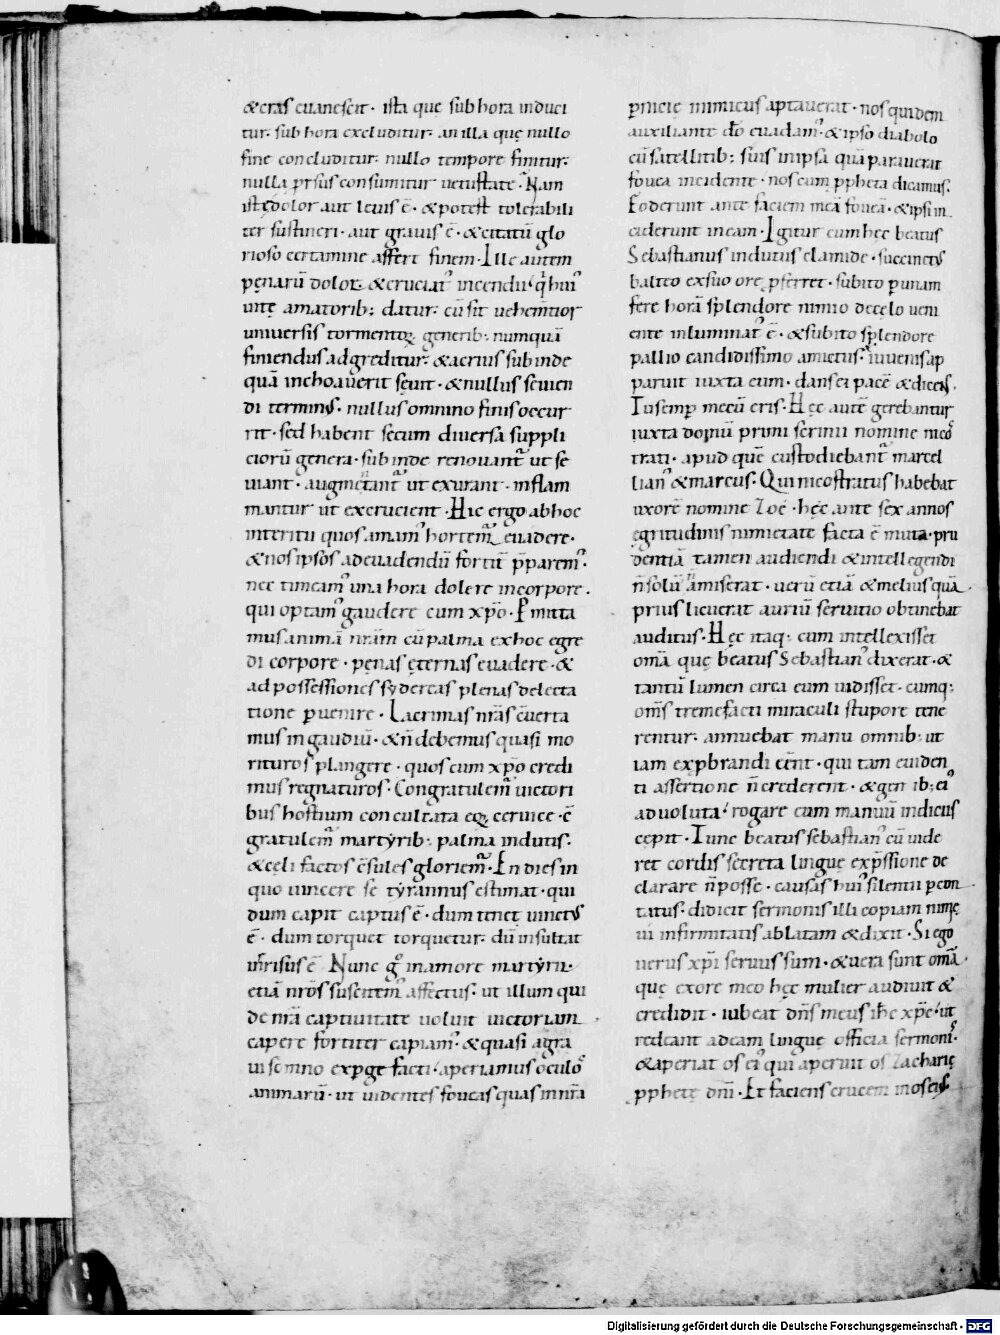 &cras euanescit · ista que sub hora induci
tur · sub hora excluditur · an illa quę nullo
fine concluditur · nullo tempore finitur ·
nulla ꝑsus consumitur uetustate · Nam
iste dolor aut leuis ē · & potest tolerabili
ter sustineri · aut grauis ē · & citatū glo
rioso certamine affert finem · Ille autem
pęnarū dolor · & cruciatꝰ incendii q̇ huiꝰ
uitę amatorib; datur · cū sit uehem̄tior
uniuersis tormentoꝝ generib; numquā
finiendus adgreditur · & acrius subinde
quā inchoauerit seuit · & nullus seuien
di terminꝰ · nullus omnino finis occur
rit · sed habent secum diuersa suppli
ciorū genera · subinde renouant᷑ ut se
uiant · augmentant᷑ ut exurant · inflam
mantur ut excrucient · Hic ergo ab hoc
interitu quos amamꝰ hortem᷑ euadere ·
& nos ipsos ad euadendū fortit̄ p̄paremꝰ ·
nec timeamꝰ una hora dolere in corpore ·
qui optamꝰ gaudere cum xp̄o · Pmitta
mus animā nr̄am cū palma ex hoc egre
di corpore · pęnas ęternas euadere · &
ad possessiones sydereas plenas delecta
tione ꝑuenire · Lacrimas nr̄as c̄uerta
mus in gaudiū · & n̄ debemus quasi mo
rituros plangere · quos cum xp̄o credi
mus regnaturos · Congratulem᷑ uictori
bus hostium conculcata eoꝝ ceruice · c̄
gratulem᷑ martyrib; palma indutis ·
& cęli factos c̄sules gloriem᷑ · En dies in
quo uincere se tyrannus estimat · qui
dum capit captus ē · dum tenet uinctꝰ
ē · dum torquet torquetur · dū insultat
irrisus ē Nunc gͦ in amore martyrii
etiā nr̄os suscitemꝰ affectus · ut illum qui
de nr̄a captiuitate uoluit uictoriam
capere fortiter capiamꝰ · & quasi a gra
ui somno expge facti · aperiamus oculoˢ
animarū · ut uidentes foueas quas in nr̄a
pernicie inimicus aptauerat · nos quidem
auxiliante dō euadamꝰ · & ipso diabolo
cū satellitib; suis in ipsa quā parauerat
fouea incidente · nos cum ꝓpheta dicamus ·
Foderunt ante faciem meā foueā · & ipsi in
ciderunt in eam · Igitur cum hęc beatus
Sebastianus indutus clamide · succinctus
balteo ex suo ore ꝓferret · subito ꝑ unam
fere horā splendore nimio de cęlo ueni
ente inluminatꝰ ē · & subito splendore
pallio candidissimo amictus · iuuenis ap
paruit iuxta eum · dans ei pacē & dicens ·
Tu semꝑ mecū eris · Hęc autē gerebantur
iuxta domū primi scrinii nomine nicoˢ
trati · apud quē custodiebant᷑ marcel
lianꝰ & marcus · Qui nicostratus habebat
uxorē nomine Zoe · hęc ante sex annos
ęgritudinis nimietate facta ē muta · pru
dentiā tamen audiendi & intellegendi
n̄ solū n̄ amiserat · uerū etiā & melius quā
prius licuerat auriū seruitio obtinebat
auditus · Hęc itaq; cum intellexisset
omā quę beatus Sebastianꝰ dixerat · &
tantū lumen circa eum uidisset · cumq;
om̄s tremefacti miraculi stupore tene
rentur · annuebat manu omnib; ut
iam exprobrandi cēnt · qui tam euiden
ti assertione n̄ crederent · & genib; eiꝰ
aduoluta rogare eum manuū indiciis
cepit · Tunc beatus sebastianꝰ cū uide
ret cordis secreta linguę expr̄ssione de
clarare n̄ posse · causas huiꝰ silentii ꝑcon
tatus · didicit sermonis illi copiam nimie
ui infirmitatis ablatam & dixit · Si ego
uerus xp̄i seruus sum · & uera sunt om̄a ·
quę ex ore meo hęc mulier audiuit &
credidit · iubeat dn̄s meus ih̄c xp̄c · ut
redeant ad eam linguę officia sermonis
& aperiat os eiꝰ qui aperuit os Zacharię
ꝓphetę dn̄i · Et faciens crucem in os eiꝰ
Digitalisierung gefördert durch die Deutsche Forschungsgemeinschaft - DFG